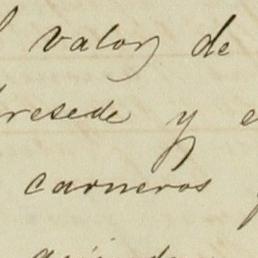 valor de
presede y
carneros